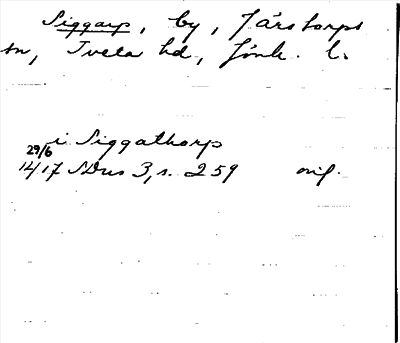 Siggarp, by, Järstorps
sn, Tveta hd, Jönk. l.
i Siggathorp
29/6
1417 SDns 3, s. 259 orig.